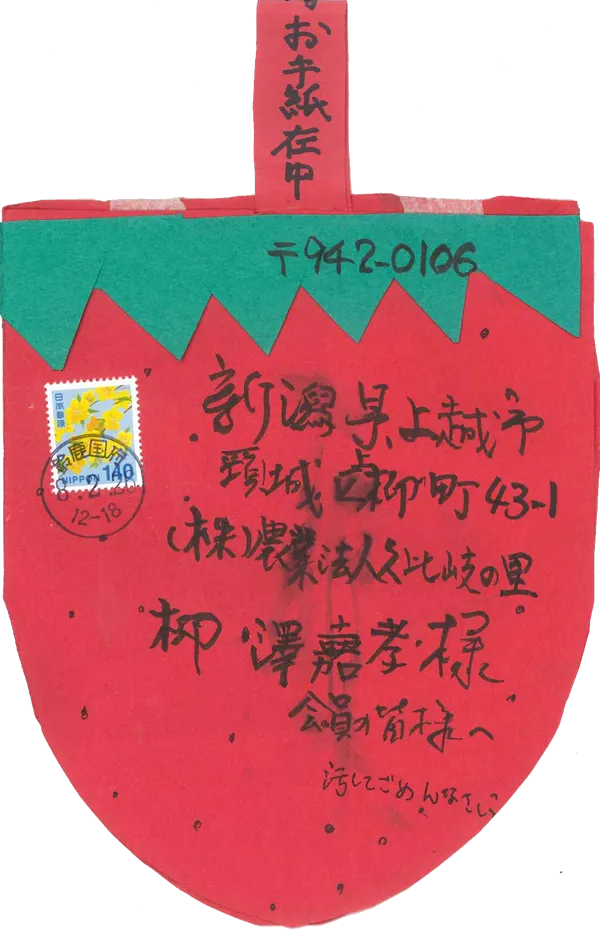 お手紙在中
〒942-0106
新潟県上越市
頸城区柳町43-1
(株)農業法人久比岐の里
柳澤嘉孝様
会員の皆様へ
汚してごめんなさい
日本郵便
NIPPON 140
鈴鹿国府
8.2.26
12-18